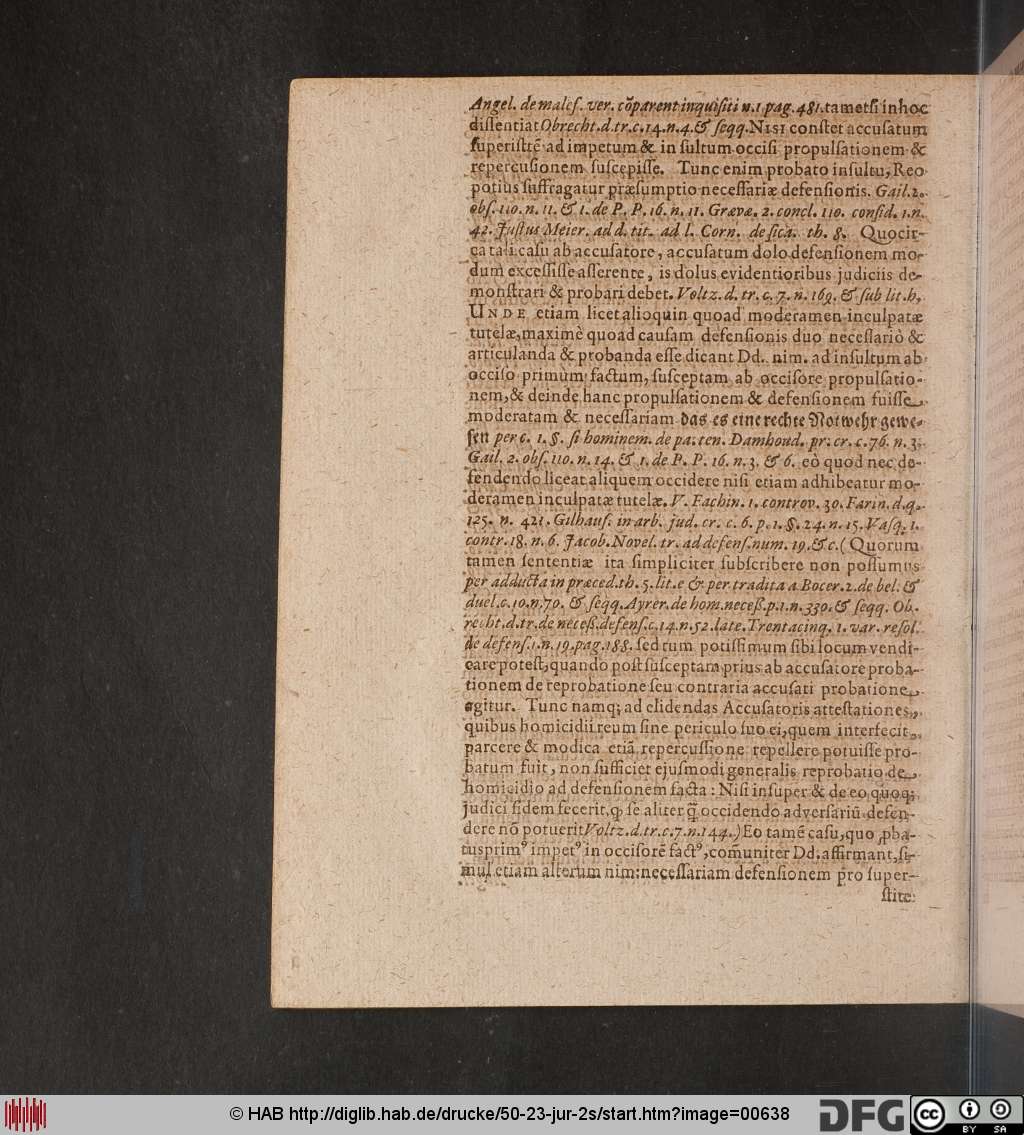 Angel. de malef. ver. cõparent inquisiti n.1 pag. 481. tametsi in hoc
dissentiat Obrecht. d. tr. c. 14. n. 4. & seqq. NISI constet accusatum
superistitẽ ad impetum & in sultum occisi propulsationem &
repercusionem suscepisse. Tunc enim probato insultu, Reo
potius suffragatur præsumptio necessariæ defensionis. Gail. 2.
obs. 110. n. 11. & 1. de P. P. 16. n. 11. Grævæ. 2. concl. 110. consid. 1. n.
42. Justus Meier. ad d. tit. ad l. Corn. de sica. th. 8. Quocir-
ca tali casu ab accusatore, accusatum dolo defensionem mo-
dum excessisse asserente, is dolus evidentioribus judiciis de-
monstrari & probari debet. Voltz. d. tr. c. 7. n. 169. & sub lit. h,
UNDE etiam licet alioquin quoad moderamen inculpatæ
tutelæ, maximè quoad causam defensionis duo necessariò &
articulanda & probanda esse dicant Dd. nim. ad insultum ab
occiso primùm factum, susceptam ab occisore propulsatio-
nem, & deinde hanc propulsationem & defensionem fuisse
moderatam & necessariam das es eine rechte Notwehr gewe-
sen per c. 1. §. si hominem. de pa. ten. Damhoud. pr. cr. c. 76. n. 3.
Gail. 2. obs. 110. n. 14. & 1. de P. P. 16. n. 3. & 6. eò quod nec de-
fendendo liceat aliquem occidere nisi etiam adhibeatur mo-
deramen inculpatæ tutelæ. V. Fachin. 1. controv. 30. Farin. d. q.
125. n. 421. Gilhaus. in arb. jud. cr. c. 6. p. 1. §. 24. n. 15. Vasq. 1.
contr. 18. n. 6. Jacob. Novel. tr. ad defens. num. 19. &c. (Quorum
tamen sententiæ ita simpliciter subscribere non possumus
per adducta in præced. th. 5. lit. e & per tradita a Bocer. 2. de bel. &
duel. c. 10. n. 70. & seqq. Ayrer. de hom. neceß. p. 1. n. 330. & seqq. Ob-
recht. d. tr. de neceß. defens. c. 14. n. 52. late. Trentacinq. 1. var. resol.
de defens. 1. n. 19. pag. 188. sed tum potissimum sibi locum vendi-
care potest, quando post susceptam prius ab accusatore proba-
tionem de reprobatione seu contraria accusati probatione
agitur. Tunc namq; ad elidendas Accusatoris attestationes,
quibus homicidii reum sine periculo suo ei, quem interfecit,
parcere & modica etiã repercussione repellere potuisse pro-
batum fuit, non sufficiet ejusmodi generalis reprobatio de
homicidio ad defensionem facta: Nisi insuper & de eo quoq;
judici fidem fecerit, ꝙ se aliter q̃ occidendo adversariũ defen-
dere nõ potuerit Voltz. d. tr. c. 7. n. 144.) Eo tamẽ casu, quo ꝓba-
tus primꝰ impetꝰ in occisorẽ factꝰ, com̃uniter Dd. affirmant, si-
mul etiam alterum nim: necessariam defensionem pro super-
stite
© HAB http://diglib.hab.de/drucke/50-23-jur-2s/start.htm?image=00638
DFG
cc BY SA